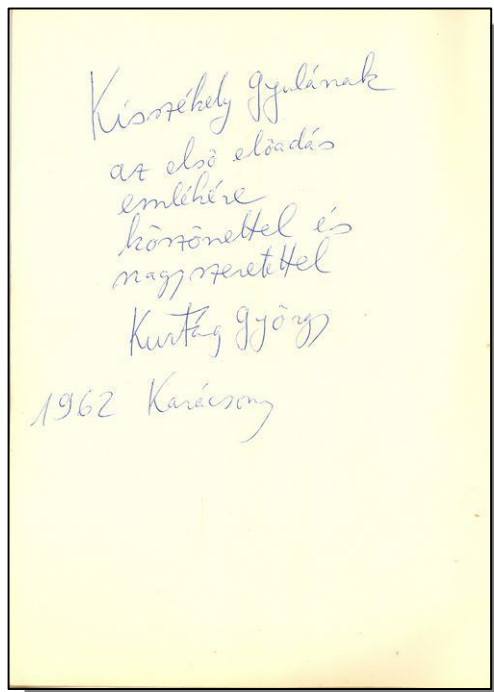 Kisszékely Gyulának
az első előadás
emlékére
köszönettel és
nagy szeretettel
Kurtág György
1962 Karácsony